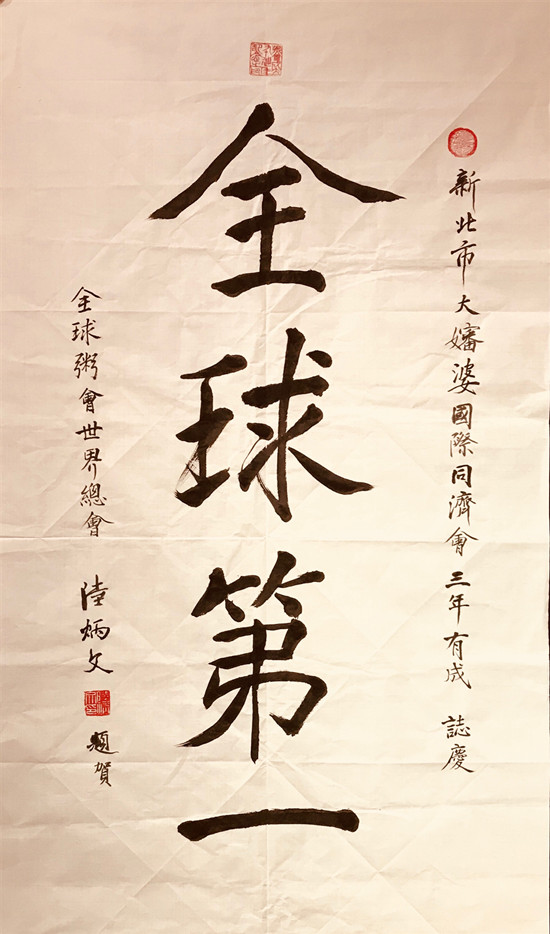 新北市大嬸婆國際同濟會三年有成 誌慶
全球第一
全球粥會世界總會 陸炳文 題賀